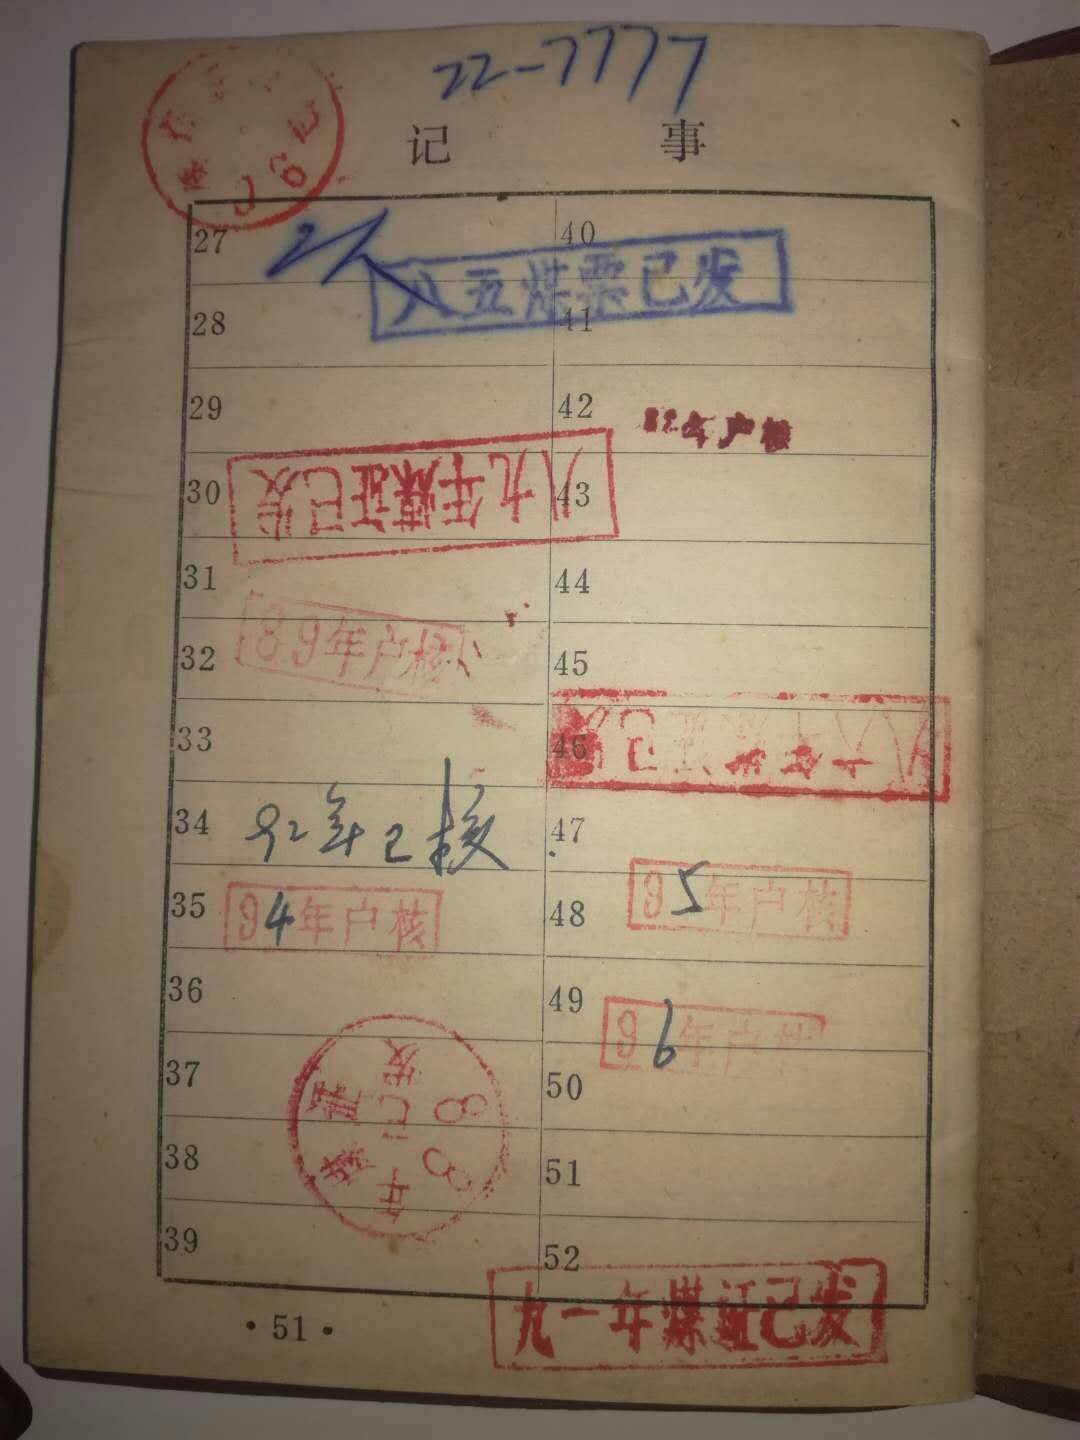 22-7777
记 事
27 2人 40
八五煤票已发
28 41
29 42
82年户核
八九年煤证已发
30 43
31 44
89年户核
32 45
33 46
34 92年已核 47
35 94年户核 48 95年户核
36 49
96年户核
37 50
88年煤证已发
38 51
39 52
九一年煤证已发
·51·